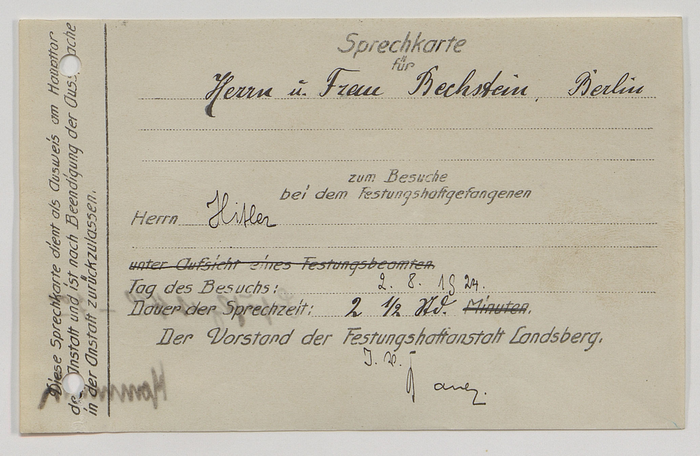 Sprechkarte
für
Herrn u. Frau Bechstein, Berlin
zum Besuche
bei dem Festungshaftgefangenen
Herrn Hitler
unter Aufsicht eines Festungsbeamten
Tag des Besuchs: 2. 8. 1924.
Dauer der Sprechzeit: 2 1/2 Std. Minuten.
Der Vorstand der Festungshaftanstalt Landsberg.
J. V.
Diese Sprechkarte dient als Ausweis am Haupttor
der Anstalt und ist nach Beendigung der Aussprache
in der Anstalt zurückzulassen.